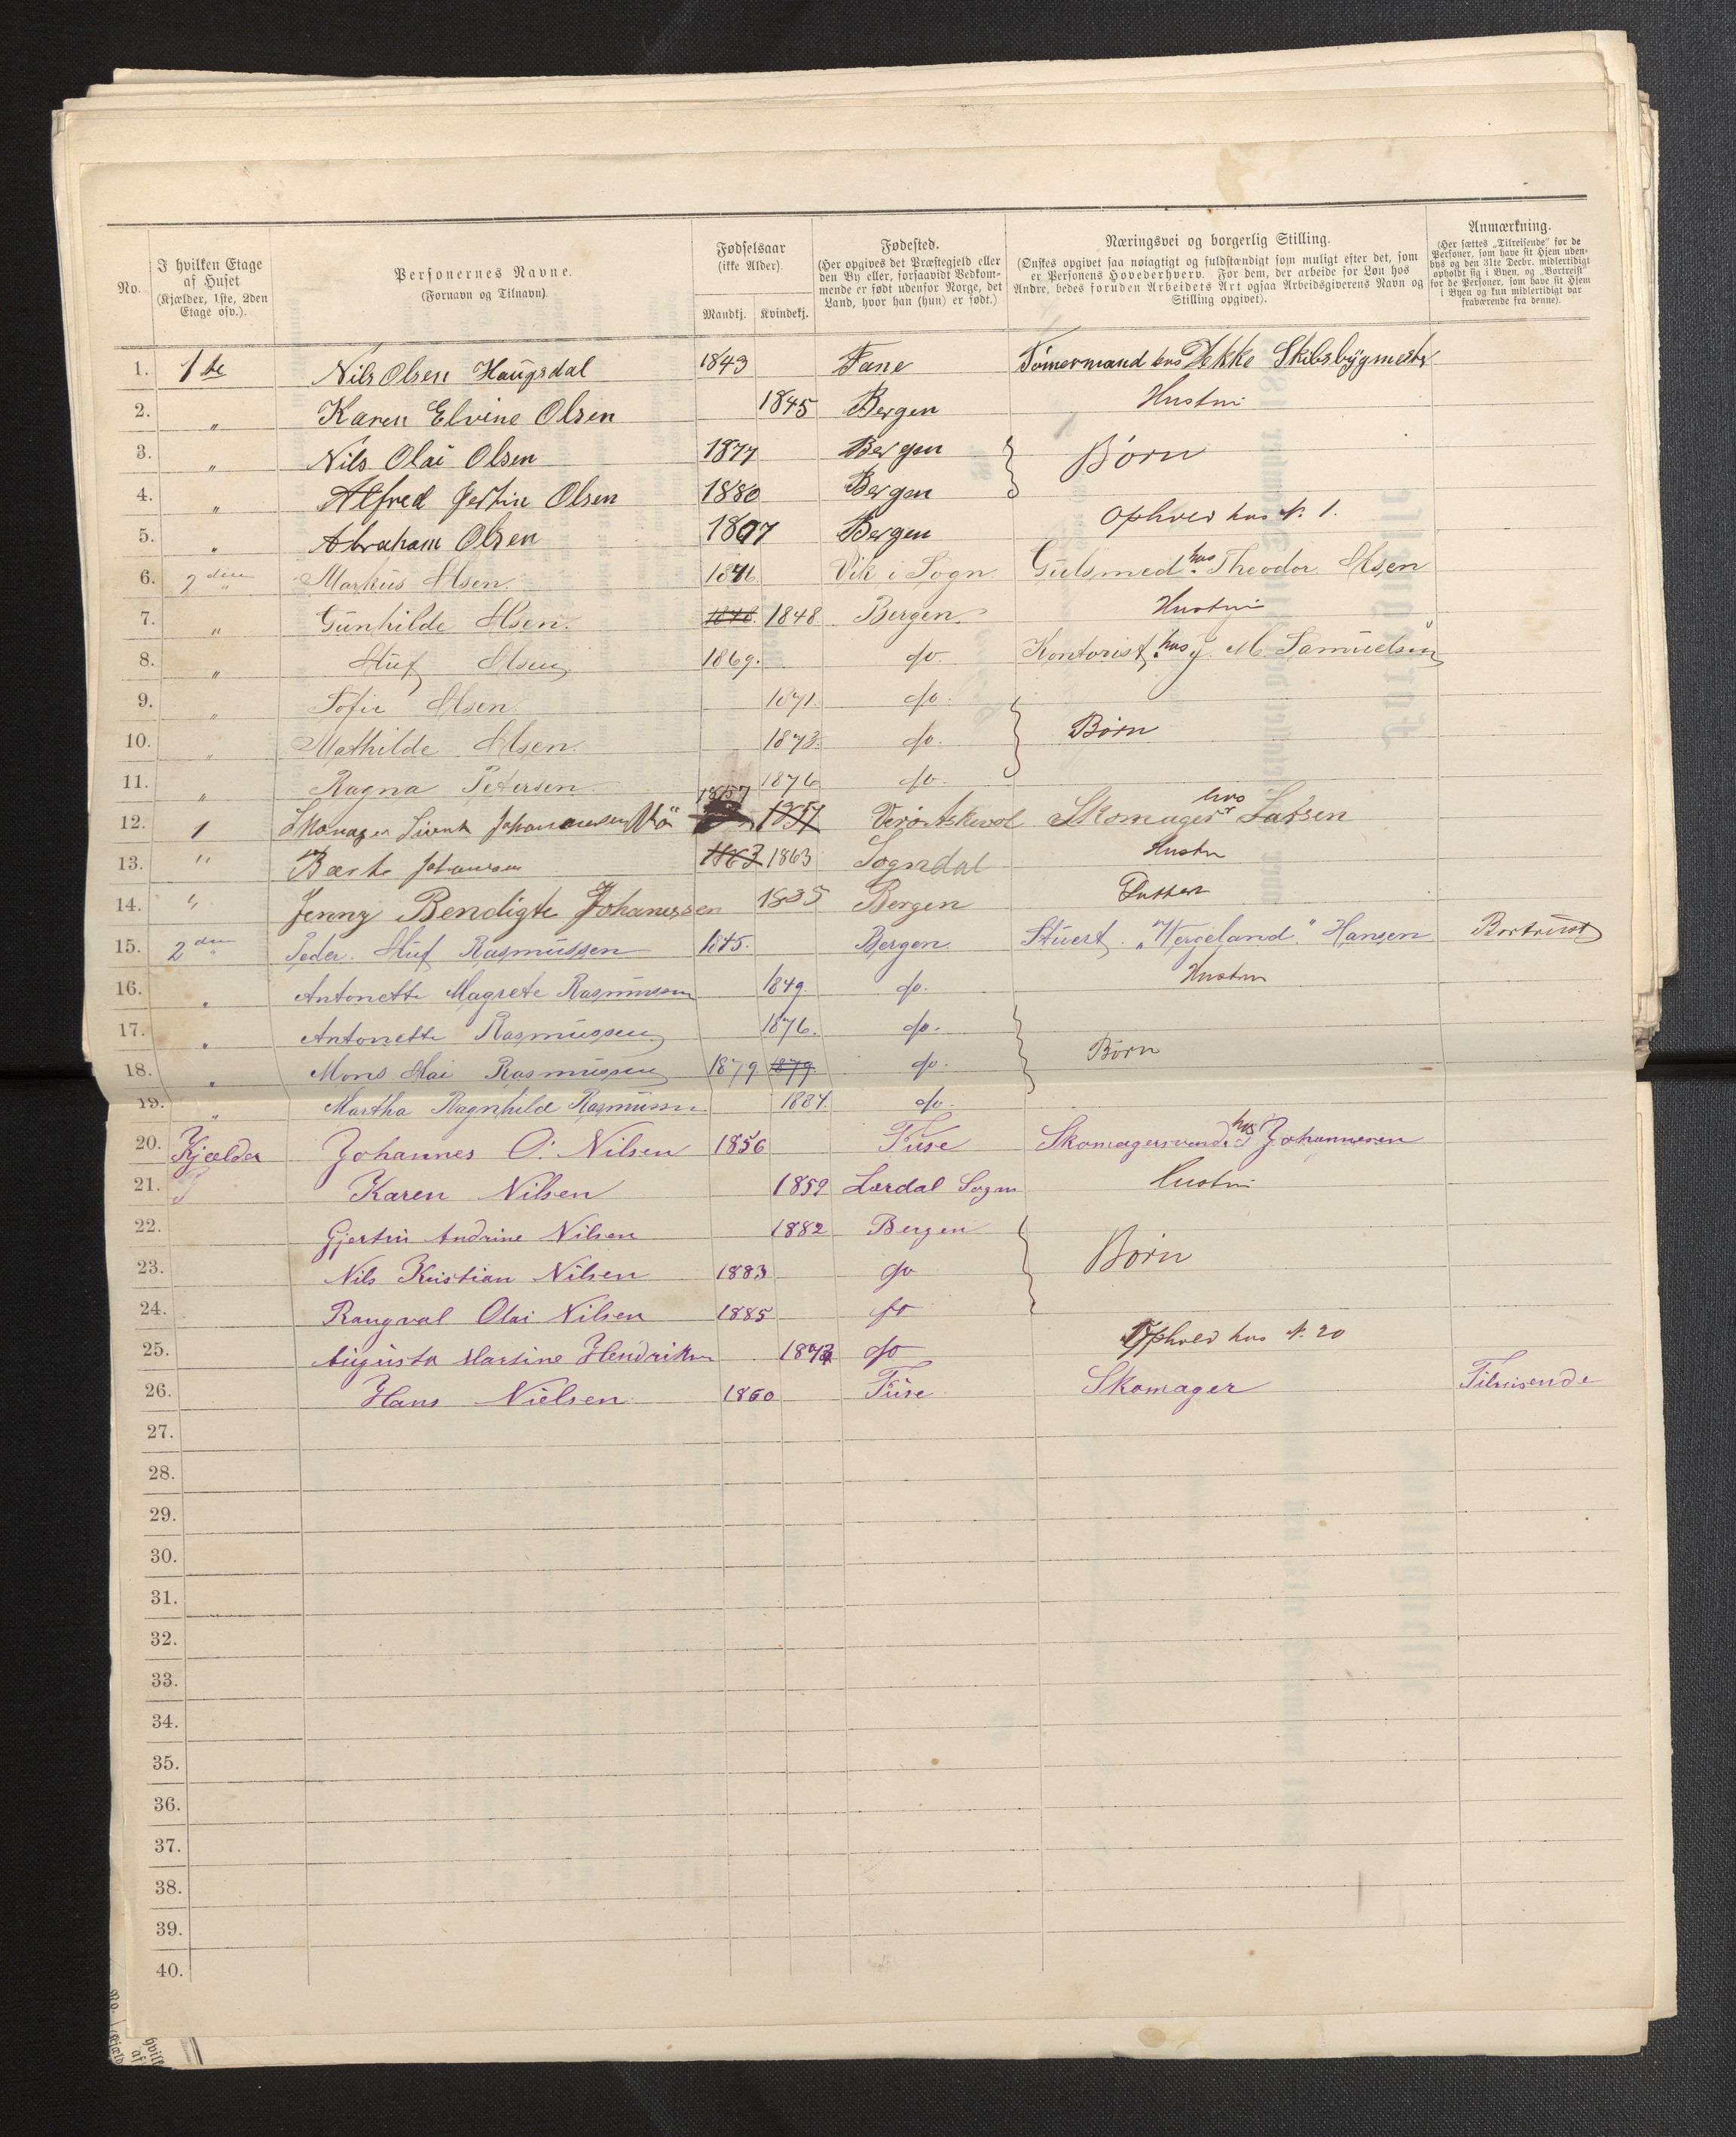 No.
I hvilken Etage af Huset (Kjælder, 1ste, 2den Etage osv.).
Personernes Navne. (Fornavn og Tilnavn)
Fødselsaar (ikke Alder). Mandkj. Kvindekj.
Fødested. (Her opgives det Præstegjeld eller den By eller, forsaavidt Vedkommende er født udenfor Norge, det Land, hvor han (hun) er født.)
Næringsvei og borgerlig Stilling. (Ønskes opgivet saa nøiagtigt og fuldstændigt som muligt efter det, som er Personens Hovederhverv. For dem, der arbeide for Løn hos Andre, bedes foruden Arbeidets Art ogsaa Arbeidsgiverens Navn og Stilling opgivet).
Anmærkning. (Her sættes „Tilreisende" for de Personer, som have sit Hjem udenbys og den 31te Decbr. midlertidigt opholdt sig i Byen, og „Bortreist" for de Personer, som have sit Hjem i Byen og kun midlertidigt var fraværende fra denne).
1. 1ste Nils Olsen Haugsdal 1843 Fane Tømermand hos Dekke Skibsbygmester
2. " Karen Elvine Olsen 1845 Bergen Hustru
3. " Nils Olai Olsen 1877 Bergen } Børn
4. " Alfred Olsen 1880 Bergen
5. " Abraham Olsen 1807 Bergen Ophold hos N. 1.
6. 2den Markus Olsen 1846 Vik i Sogn Gulsmed hos Theodor Olsen
7. " Gunhilde Olsen. 1848. 1848 Bergen. Hustru
8. " Oluf Olsen 1869. do. Kontorist, hos J. M. Samuelsen
9. " Sofie Olsen 1871. do.
10. " Mathilde Olsen. 1873. do. } Børn
11. " Ragna Petersen 1876 do.
12. 1 Skomager Johannesen 1857 1857 Skomager hos Larsen
13. " Johansen 1863 1863 Sogndal Hustru
14. " Jenny Bendigte Johanessen 1835 Bergen
15. 2den Peder Oluf Rasmussen 1845. Bergen Stuert „Wergeland." Hansen Bortreist
16. " Antonette Magrete Rasmussen 1849. do. Hustru
17. " Antonette Rasmussen 1876. do. } Børn
18. " Mons Olai Rasmussen 1879 1879. do.
19. " Martha Ragnhild Rasmussen 1884. do.
20. Kjælder Johannes O. Nilsen 1856 Fuse Skomagersvend hos Johannesen
21. Karen Nilsen 1859 Lærdal Sogn Hustru
22. Gjertin Andrine Nilsen 1882 Bergen } Børn
23. Nils Kristian Nilsen 1883 do
24. Rangval Olai Nilsen 1885 do
25. Augusta Martine Hendriksen do Ophold hos N. 20
26. Hans Nielsen 1860 Fuse Skomager Tilreisende
27.
28.
29.
30.
31.
32.
33.
34.
35.
36.
37.
38.
39.
40.